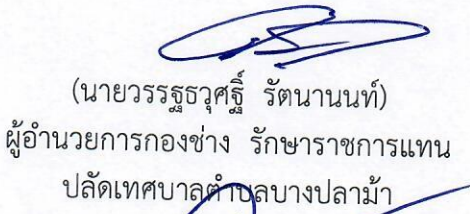 (นายวรรฐธวุศฐิ์ รัตนานนท์)
ผู้อำนวยการกองช่าง รักษาราชการแทน
ปลัดเทศบาลตำบลบางปลาม้า